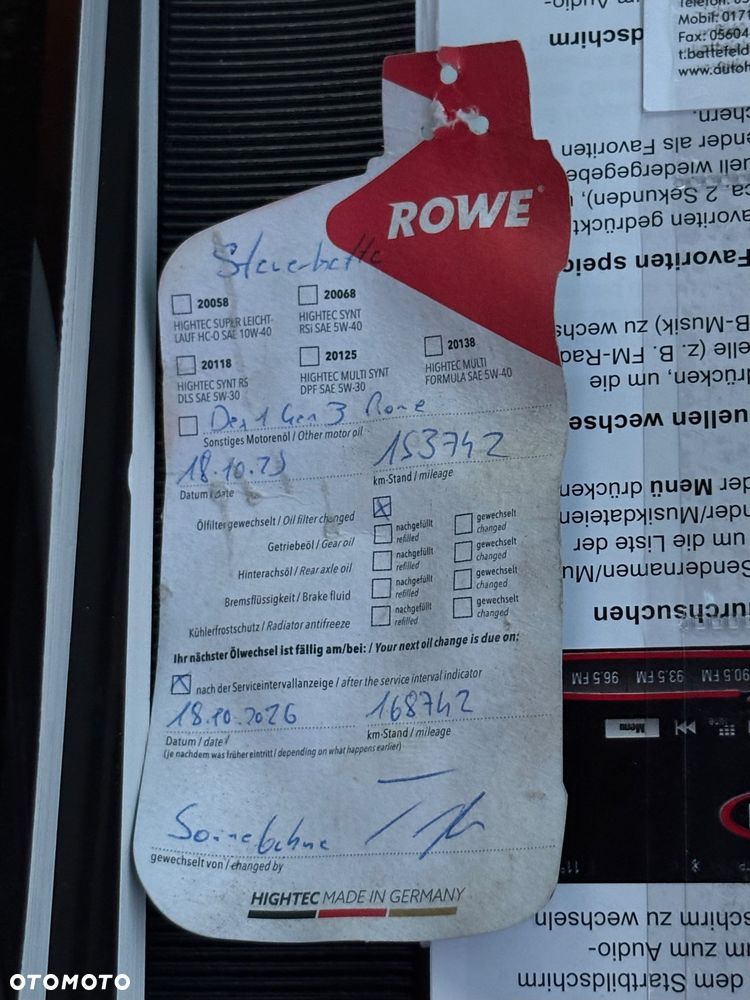 ROWE
Steuerkette
20058
HIGHTEC SUPER LEICHT-
LAUF HC-O SAE 10W-40
20068
HIGHTEC SYNT
RSi SAE 5W-40
20118
HIGHTEC SYNT RS
DLS SAE 5W-30
20125
HIGHTEC MULTI SYNT
DPF SAE 5W-30
20138
HIGHTEC MULTI
FORMULA SAE 5W-40
Dex 1 Gen 3 Rowe
Sonstiges Motorenöl / Other motor oil
18.10.25 153742
Datum / date km-Stand / mileage
Ölfilter gewechselt / Oil filter changed
Getriebeöl / Gear oil nachgefüllt refilled gewechselt changed
Hinterachsöl / Rear axle oil nachgefüllt refilled gewechselt changed
Bremsflüssigkeit / Brake fluid nachgefüllt refilled gewechselt changed
Kühlerfrostschutz / Radiator antifreeze nachgefüllt refilled gewechselt changed
Ihr nächster Ölwechsel ist fällig am/bei: / Your next oil change is due on:
nach der Serviceintervallanzeige / after the service interval indicator
18.10.2026 168742
Datum / date km-Stand / mileage
(je nachdem was früher eintritt / depending on what happens earlier)
gewechselt von / changed by
HIGHTEC MADE IN GERMANY
Mobil: 0171
Fax: 05604
t.battefeld
www.autoh
dschirm
m Audio-
chern.
ender als Favoriten
uell wiedergegebe
ca. 2 Sekunden),
avoriten gedrückt
Favoriten speic
B-Musik) zu wechs
elle (z. B. FM-Rad
drücken, um die
uellen wechse
der Menü drücken
nder/Musikdateien
um die Liste der
Sendernamen/Mu
urchsuchen
90.5 FM 93.5 FM 96.5 FM
Menu
11°
schirm zu wechseln
m zum Audio-
dem Startbildschirm
OTOMOTO